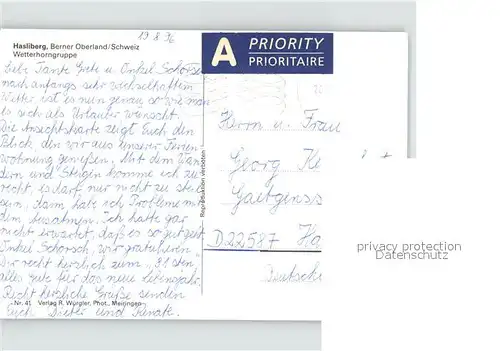 19.8.96
Hasliberg, Berner Oberland/Schweiz
Wetterhorngruppe
Liebe Tante Grete u. Onkel Schorsch
nach anfangs sehr wechselhaftem
Wetter ist es nun genau so wie man
es sich als Urlauber wünscht.
Die Ansichtskarte zeigt Euch den
Blick, den wir aus unserer Ferien-
wohnung genießen. Mit dem Wan-
dern und Steigen komme ich zu-
recht, es darf nur nicht zu steil
sein, dann habe ich Probleme mit
dem. Ich hatte gar
nicht erwartet, daß es so gut geht.
Onkel Schorsch, wir gratulieren
Dir recht herzlich zum
alles gute für das neue Lebensjahr.
Recht herzliche Grüße senden
Euch Dieter und Renate.
Nr. 41 Verlag R. Würgler, Phot., Meiringen
Reproduktion verboten
A PRIORITY
PRIORITAIRE
Herrn u. Frau
Georg
D 22587
privacy protection
Datenschutz